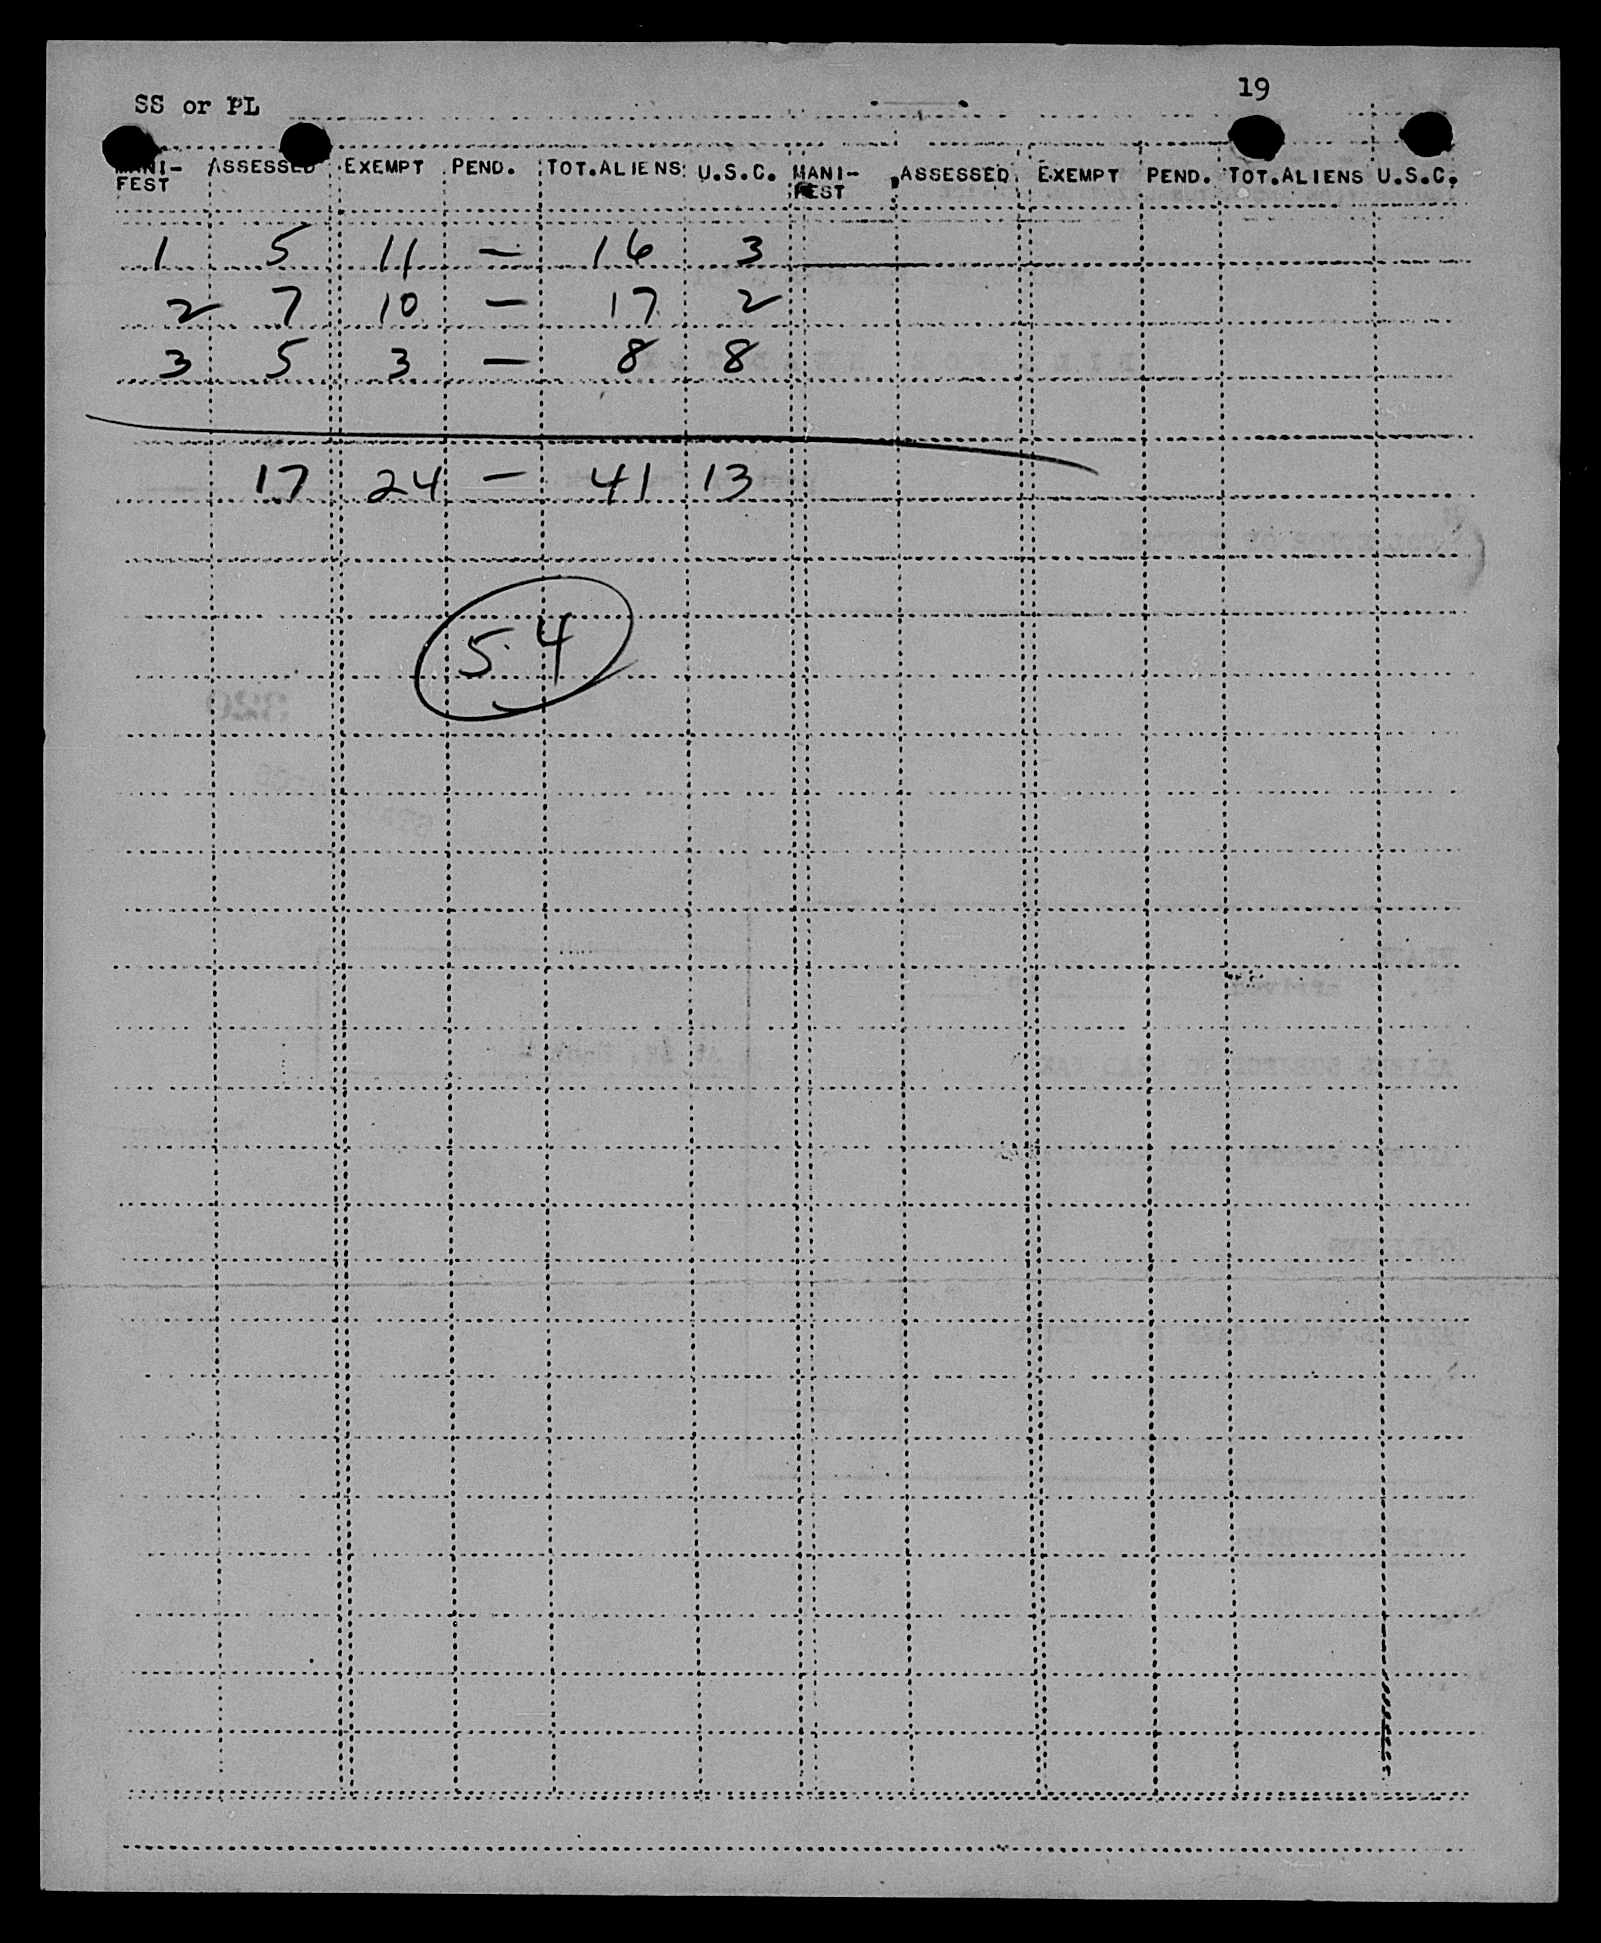 SS or PL 19
MANI- ASSESSED EXEMPT PEND. TOT.ALIENS U.S.C. MANI- ASSESSED EXEMPT PEND. TOT.ALIENS U.S.C.
FEST FEST
1 5 11 — 16 3
2 7 10 — 17 2
3 5 3 — 8 8
17 24 — 41 13
54